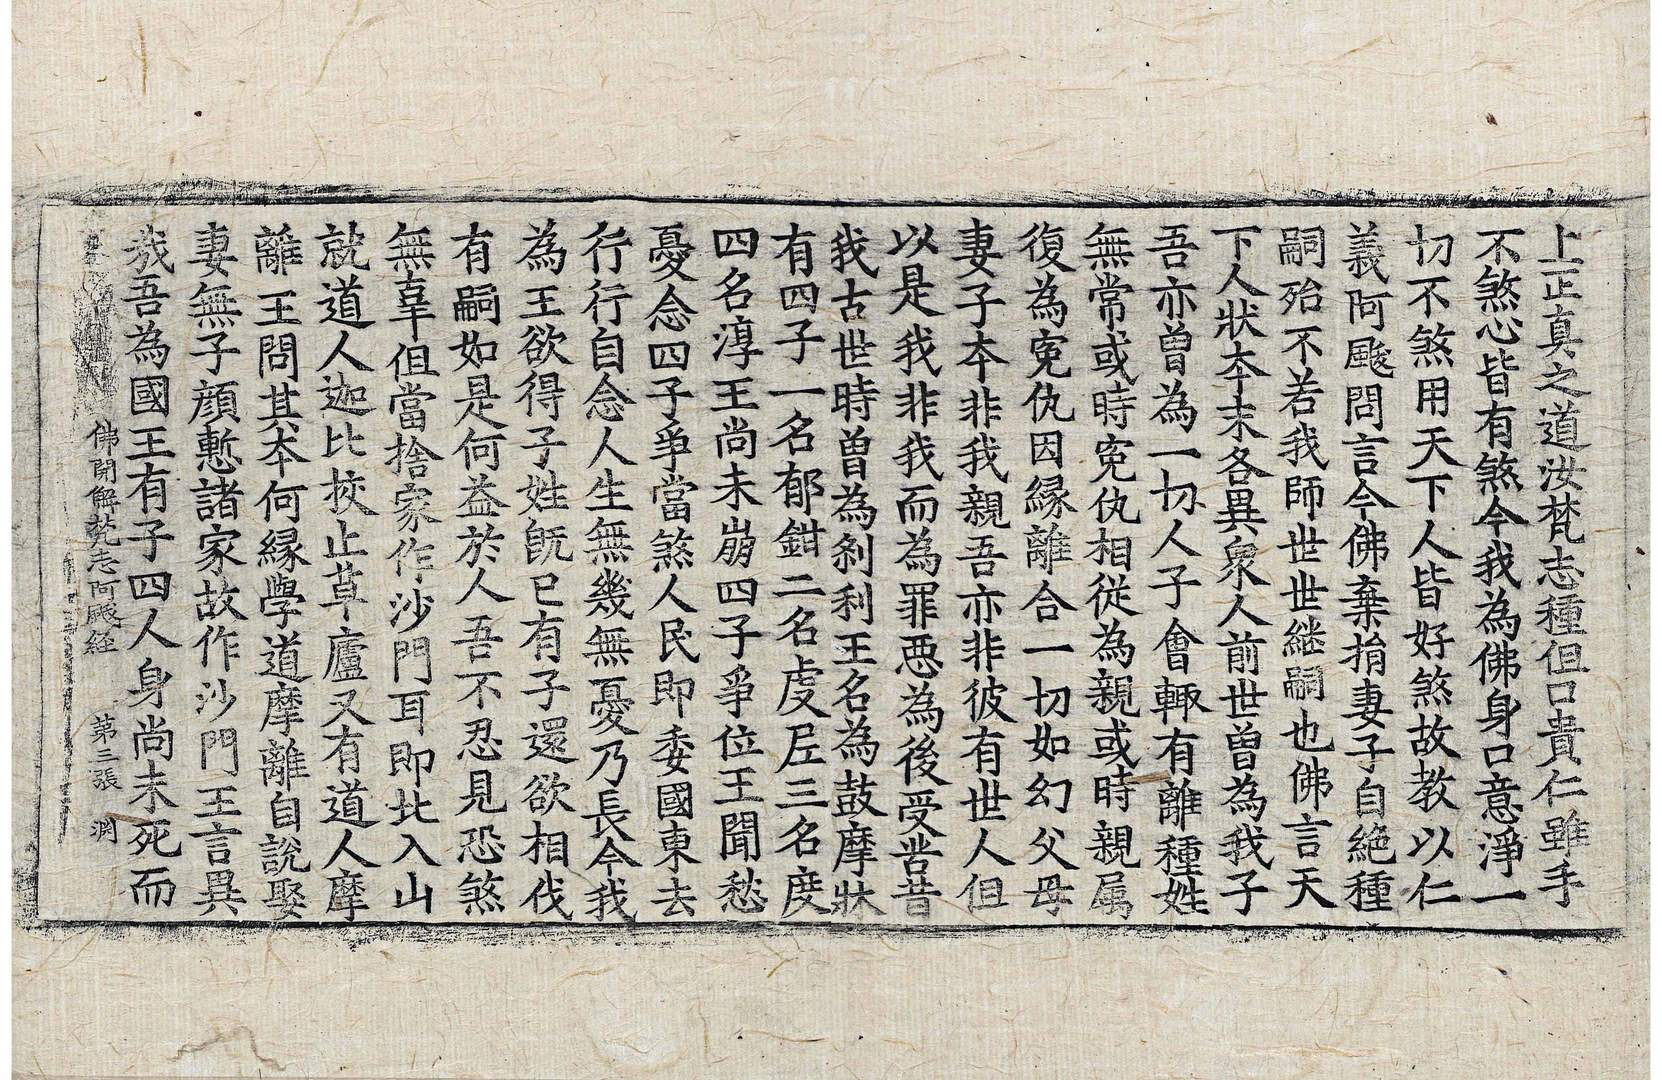 上正真之道汝梵志種但口貴仁雖手
不煞心皆有煞今我為佛身口意淨一
切不煞用天下人皆好煞故教以仁
義阿颰問言今佛棄捐妻子自絶種
嗣殆不若我師世世継嗣也佛言天
下人狀夲末各異衆人前世曽為我子
吾亦曽為一切人子會輙有離種姓
無常或時寃仇相従為親或時親属
復為寃仇因縁離合一切如幻父母
妻子夲非我親吾亦非彼有世人但
以是我非我而為罪惡為後受苦昔
我古世時曽為剎利王名為鼓摩狀
有四子一名郁鉗二名虔𡰱三名度
四名淳王尚未崩四子爭位王聞愁
憂念四子爭當煞人民即委國東去
行行自念人生無幾無憂乃長今我
為王欲得子姓旣已有子還欲相伐
有嗣如是何益於人吾不忍見恐煞
無辜但當捨家作沙門耳即北入山
就道人迦比挍止草廬又有道人摩
離王問其夲何縁學道摩離自說娶
妻無子顔慙諸家故作沙門王言異
㢤吾為國王有子四人身尚未死而
佛開解梵志阿颰経 第三張 渕